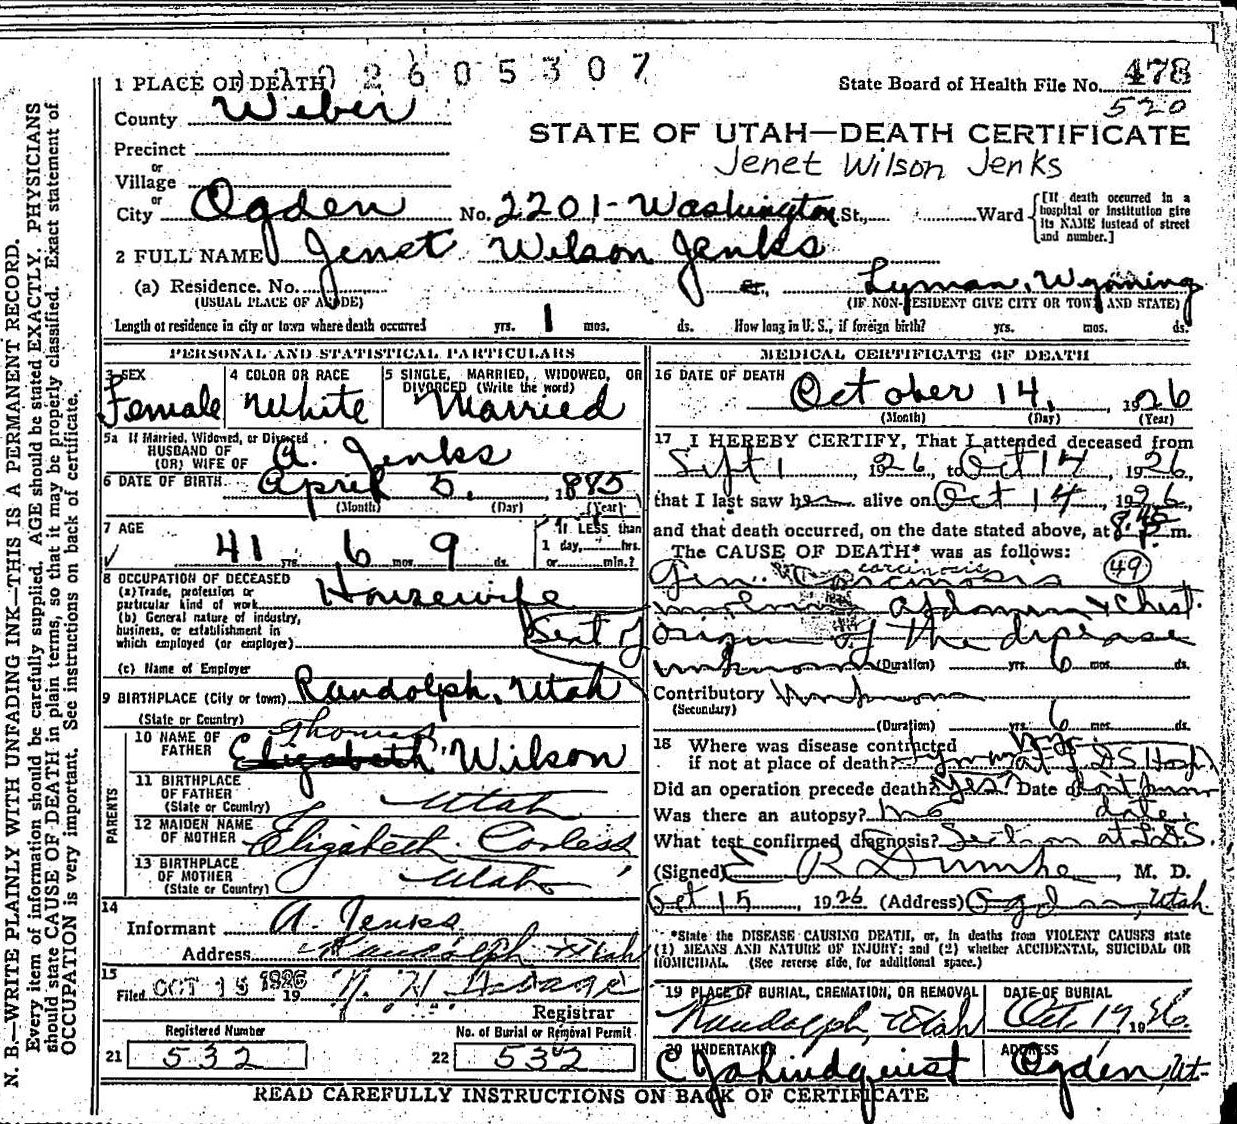 2605307
1 PLACE OF DEATH
State Board of Health File No. 478
520
County Weber
STATE OF UTAH—DEATH CERTIFICATE
Precinct
Jenet Wilson Jenks
or
Village
or
City Ogden No. 2201-Washington St., Ward
[If death occurred in a hospital or institution give its NAME instead of street and number.]
2 FULL NAME Jenet Wilson Jenks
(a) Residence. No. St., Lyman, Wyoming
(USUAL PLACE OF ABODE) (IF NON-RESIDENT GIVE CITY OR TOWN AND STATE)
Length of residence in city or town where death occurred yrs. 1 mos. ds. How long in U. S., if foreign birth? yrs. mos. ds.
PERSONAL AND STATISTICAL PARTICULARS
3 SEX
Female
4 COLOR OR RACE
White
5 SINGLE, MARRIED, WIDOWED, OR
DIVORCED (Write the word)
Married
5a If Married, Widowed, or Divorced
HUSBAND OF
(OR) WIFE OF A. Jenks
6 DATE OF BIRTH April 5, 1885
(Month) (Day) (Year)
7 AGE 41 yrs. 6 mos. 9 ds.
If LESS than
1 day, hrs.
or min.?
8 OCCUPATION OF DECEASED
(a) Trade, profession or
particular kind of work Housewife
(b) General nature of industry,
business, or establishment in
which employed (or employer)
(c) Name of Employer
9 BIRTHPLACE (City or town) Randolph, Utah
(State or Country)
PARENTS
10 NAME OF
FATHER Thomas Elizabeth Wilson
11 BIRTHPLACE
OF FATHER
(State or Country) Utah
12 MAIDEN NAME
OF MOTHER Elizabeth Corless
13 BIRTHPLACE
OF MOTHER
(State or Country) Utah
14
Informant A. Jenks
Address Randolph Utah
15
Filed OCT 15 1926 19
Registrar
Registered Number
21 532
No. of Burial or Removal Permit
22 532
MEDICAL CERTIFICATE OF DEATH
16 DATE OF DEATH
October 14, 1926
(Month) (Day) (Year)
17 I HEREBY CERTIFY, That I attended deceased from
Sept 1, 1926, to Oct 14, 1926,
that I last saw her alive on Oct 14, 1926,
and that death occurred, on the date stated above, at 8:45 P. m.
The CAUSE OF DEATH* was as follows:
carcinosis 49
Gen. Carcinosis
involving abdomen & Chest.
Seat of origin of the disease
unknown (Duration) yrs. 6 mos. ds.
Contributory Unknown
(Secondary)
(Duration) yrs. 6 mos. ds.
18 Where was disease contracted
if not at place of death? Lyman Wyo
Did an operation precede death? Yes. Date of
at L.D.S Hosp. don't know date.
Was there an autopsy? no
What test confirmed diagnosis? Section at L.D.S.
(Signed) , M. D.
Oct 15, 1926 (Address) Ogden, Utah
*State the DISEASE CAUSING DEATH, or, in deaths from VIOLENT CAUSES state
(1) MEANS AND NATURE OF INJURY; and (2) whether ACCIDENTAL, SUICIDAL OR
HOMICIDAL. (See reverse side, for additional space.)
19 PLACE OF BURIAL, CREMATION, OR REMOVAL
Randolph, Utah
DATE OF BURIAL
Oct. 17, 1926.
20 UNDERTAKER
Lindquist
ADDRESS
Ogden, Ut-
READ CAREFULLY INSTRUCTIONS ON BACK OF CERTIFICATE
N. B.—WRITE PLAINLY WITH UNFADING INK—THIS IS A PERMANENT RECORD.
Every item of information should be carefully supplied. AGE should be stated EXACTLY. PHYSICIANS
should state CAUSE OF DEATH in plain terms, so that it may be properly classified. Exact statement of
OCCUPATION is very important. See instructions on back of certificate.